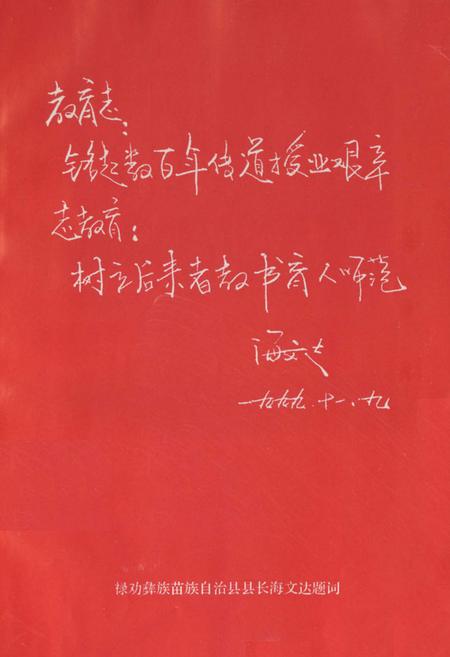 教育志：
铭起数百年传道授业艰辛
志教育：
树立后来者教书育人师范
海文达
一九九九.十一.九
禄劝彝族苗族自治县县长海文达题词